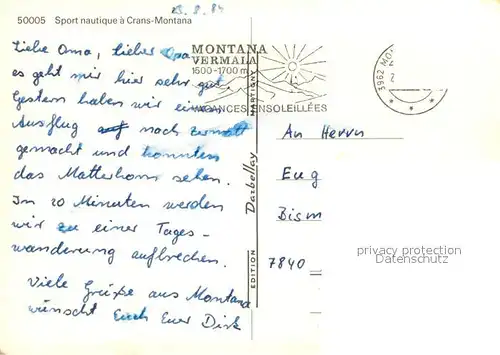 50005 Sport nautique à Crans-Montana
23.8.84
Liebe Oma, lieber Opa
es geht mir hier sehr gut.
Gestern haben wir einen
Ausflug auf nach Zermatt
gemacht und konnten
das Matterhorn sehen.
In 20 Minuten werden
wir zu einer Tages-
wanderung aufbrechen.
Viele Grüße aus Montana
wünscht Euch Euer Dirk
MONTANA
VERMALA
1500-1700 m
VACANCES ENSOLEILLÉES
3962 MO
EDITION Darbellay MARTIGNY
An Herrn
Eug
Bism
7840
privacy protection
Datenschutz